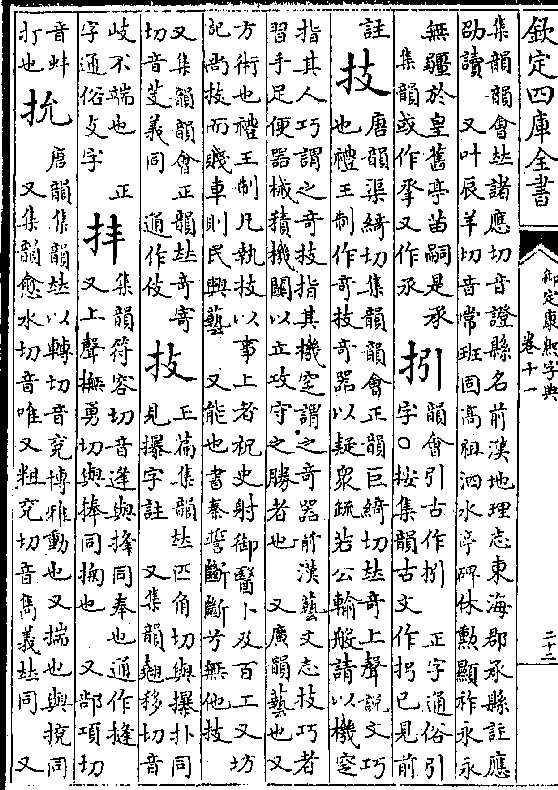 欽定四庫全書
御定康熙字典
卷十一
二十二
集韻韻會𠀤諸應切音證縣名前漢地理志東海郡承縣註應
劭讀 又叶辰羊切音常班固高祖泗水亭碑休勲顯祚永永
無疆於皇舊亭苗嗣是承
集韻或作𢪐又作氶
抈
韻會引古作抈 正字通俗引
字○按集韻古文作㧈已見前
註
技
唐韻渠綺切集韻韻會正韻巨綺切𠀤奇上聲說文巧
也禮王制作奇技奇器以疑衆疏若公輸般請以機窆
指其人巧謂之奇技指其機窆謂之奇器前漢藝文志技巧者
習手足便器械積機關以立攻守之勝者也 又廣韻藝也又
方術也禮王制凡執技以事上者祝史射御醫卜及百工又坊
記尚技而賤車則民興藝 又能也書秦誓斷斷兮無他技
又集韻韻會正韻𠀤奇寄
切音芰義同 通作伎
㧊
玉篇集韻𠀤匹角切與撲扑同
見擈字註 又集韻翹移切音
歧不端也 正
字通俗攴字
𢪋
集韻符容切音逢與捀同奉也通作縫
又上聲撫勇切與捧同掬也 又部項切
音蚌
打也
抁
唐韻集韻𠀤以轉切音兗博雅動也又揣也與挩同
又集韻愈水切音唯又粗兗切音雋義𠀤同 又